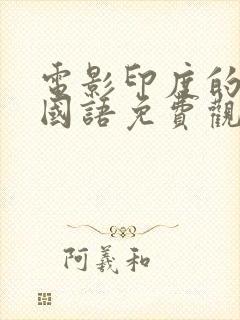 電影印度的
國語免費觀
阿義和